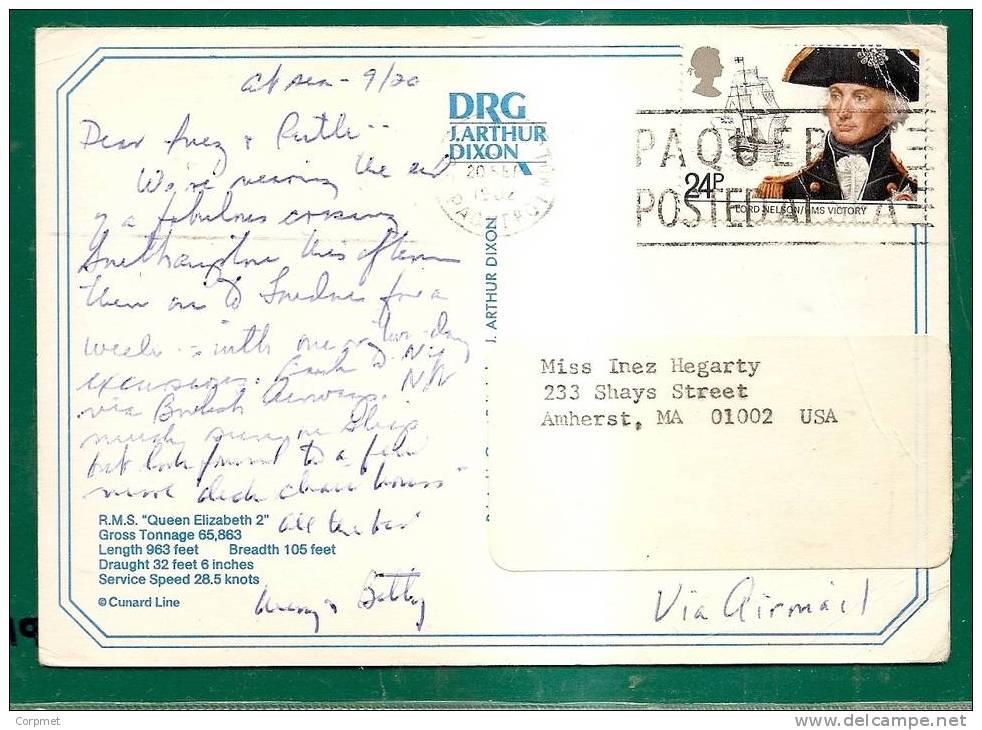 At sea - 9/20
Dear Inez & Ruth --
We're nearing the end
of a fabulous crossing
Southampton this afternoon
then on to London for a
week -- with one or two-day
excursions. Back to N.Y.
via British Airways. N
much sun on ship
but look forward to a few
more "deck chair hours"
All the best
Betty
R.M.S. "Queen Elizabeth 2"
Gross Tonnage 65,863
Length 963 feet Breadth 105 feet
Draught 32 feet 6 inches
Service Speed 28.5 knots
© Cunard Line
DRG
J. ARTHUR
DIXON
J. ARTHUR DIXON
PAQUEB
POSTED AT
24P
LORD NELSON/HMS VICTORY
Miss Inez Hegarty
233 Shays Street
Amherst, MA 01002 USA
Via Airmail
Corpmet
www.delcampe.net